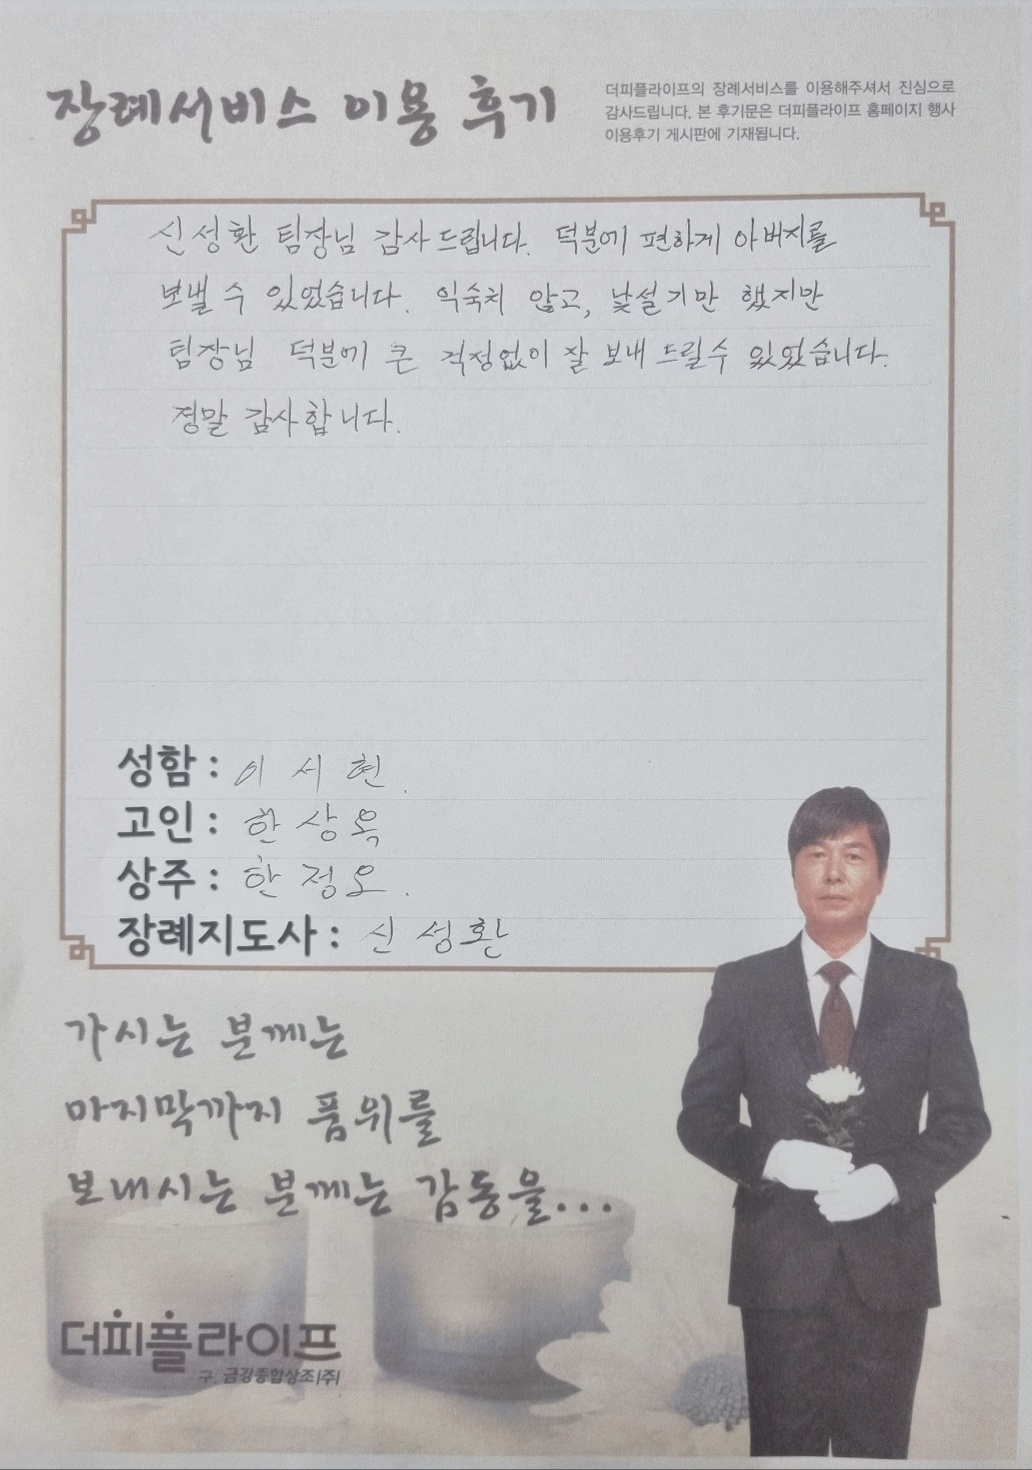 장례서비스 이용 후기
더피플라이프의 장례서비스를 이용해주셔서 진심으로
감사드립니다. 본 후기문은 더피플라이프 홈페이지 행사
이용후기 게시판에 기재됩니다.
신성환 팀장님 감사드립니다. 덕분에 편하게 아버지를
보낼 수 있었습니다. 익숙치 않고, 낯설기만 했지만
팀장님 덕분에 큰 걱정없이 잘 보내 드릴 수 있었습니다.
정말 감사합니다.
성함 : 이서현.
고인 : 한상옥
상주 : 한정오.
장례지도사 : 신성환
가시는 분께는
마지막까지 품위를
보내시는 분께는 감동을...
더피플라이프
구. 금강종합상조(주)